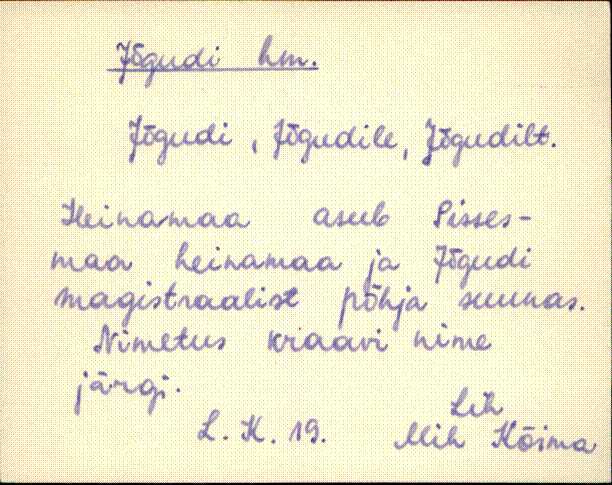 Jõgudi hm.
Jõgudi, Jõgudile, Jõgudilt.
Heinamaa asub Sisses-
maa heinamaa ja Jõgudi
magistraalist põhja suunas.
Nimetus kraavi nime
järgi.
Lih
L. K. 19. Mih Kõima